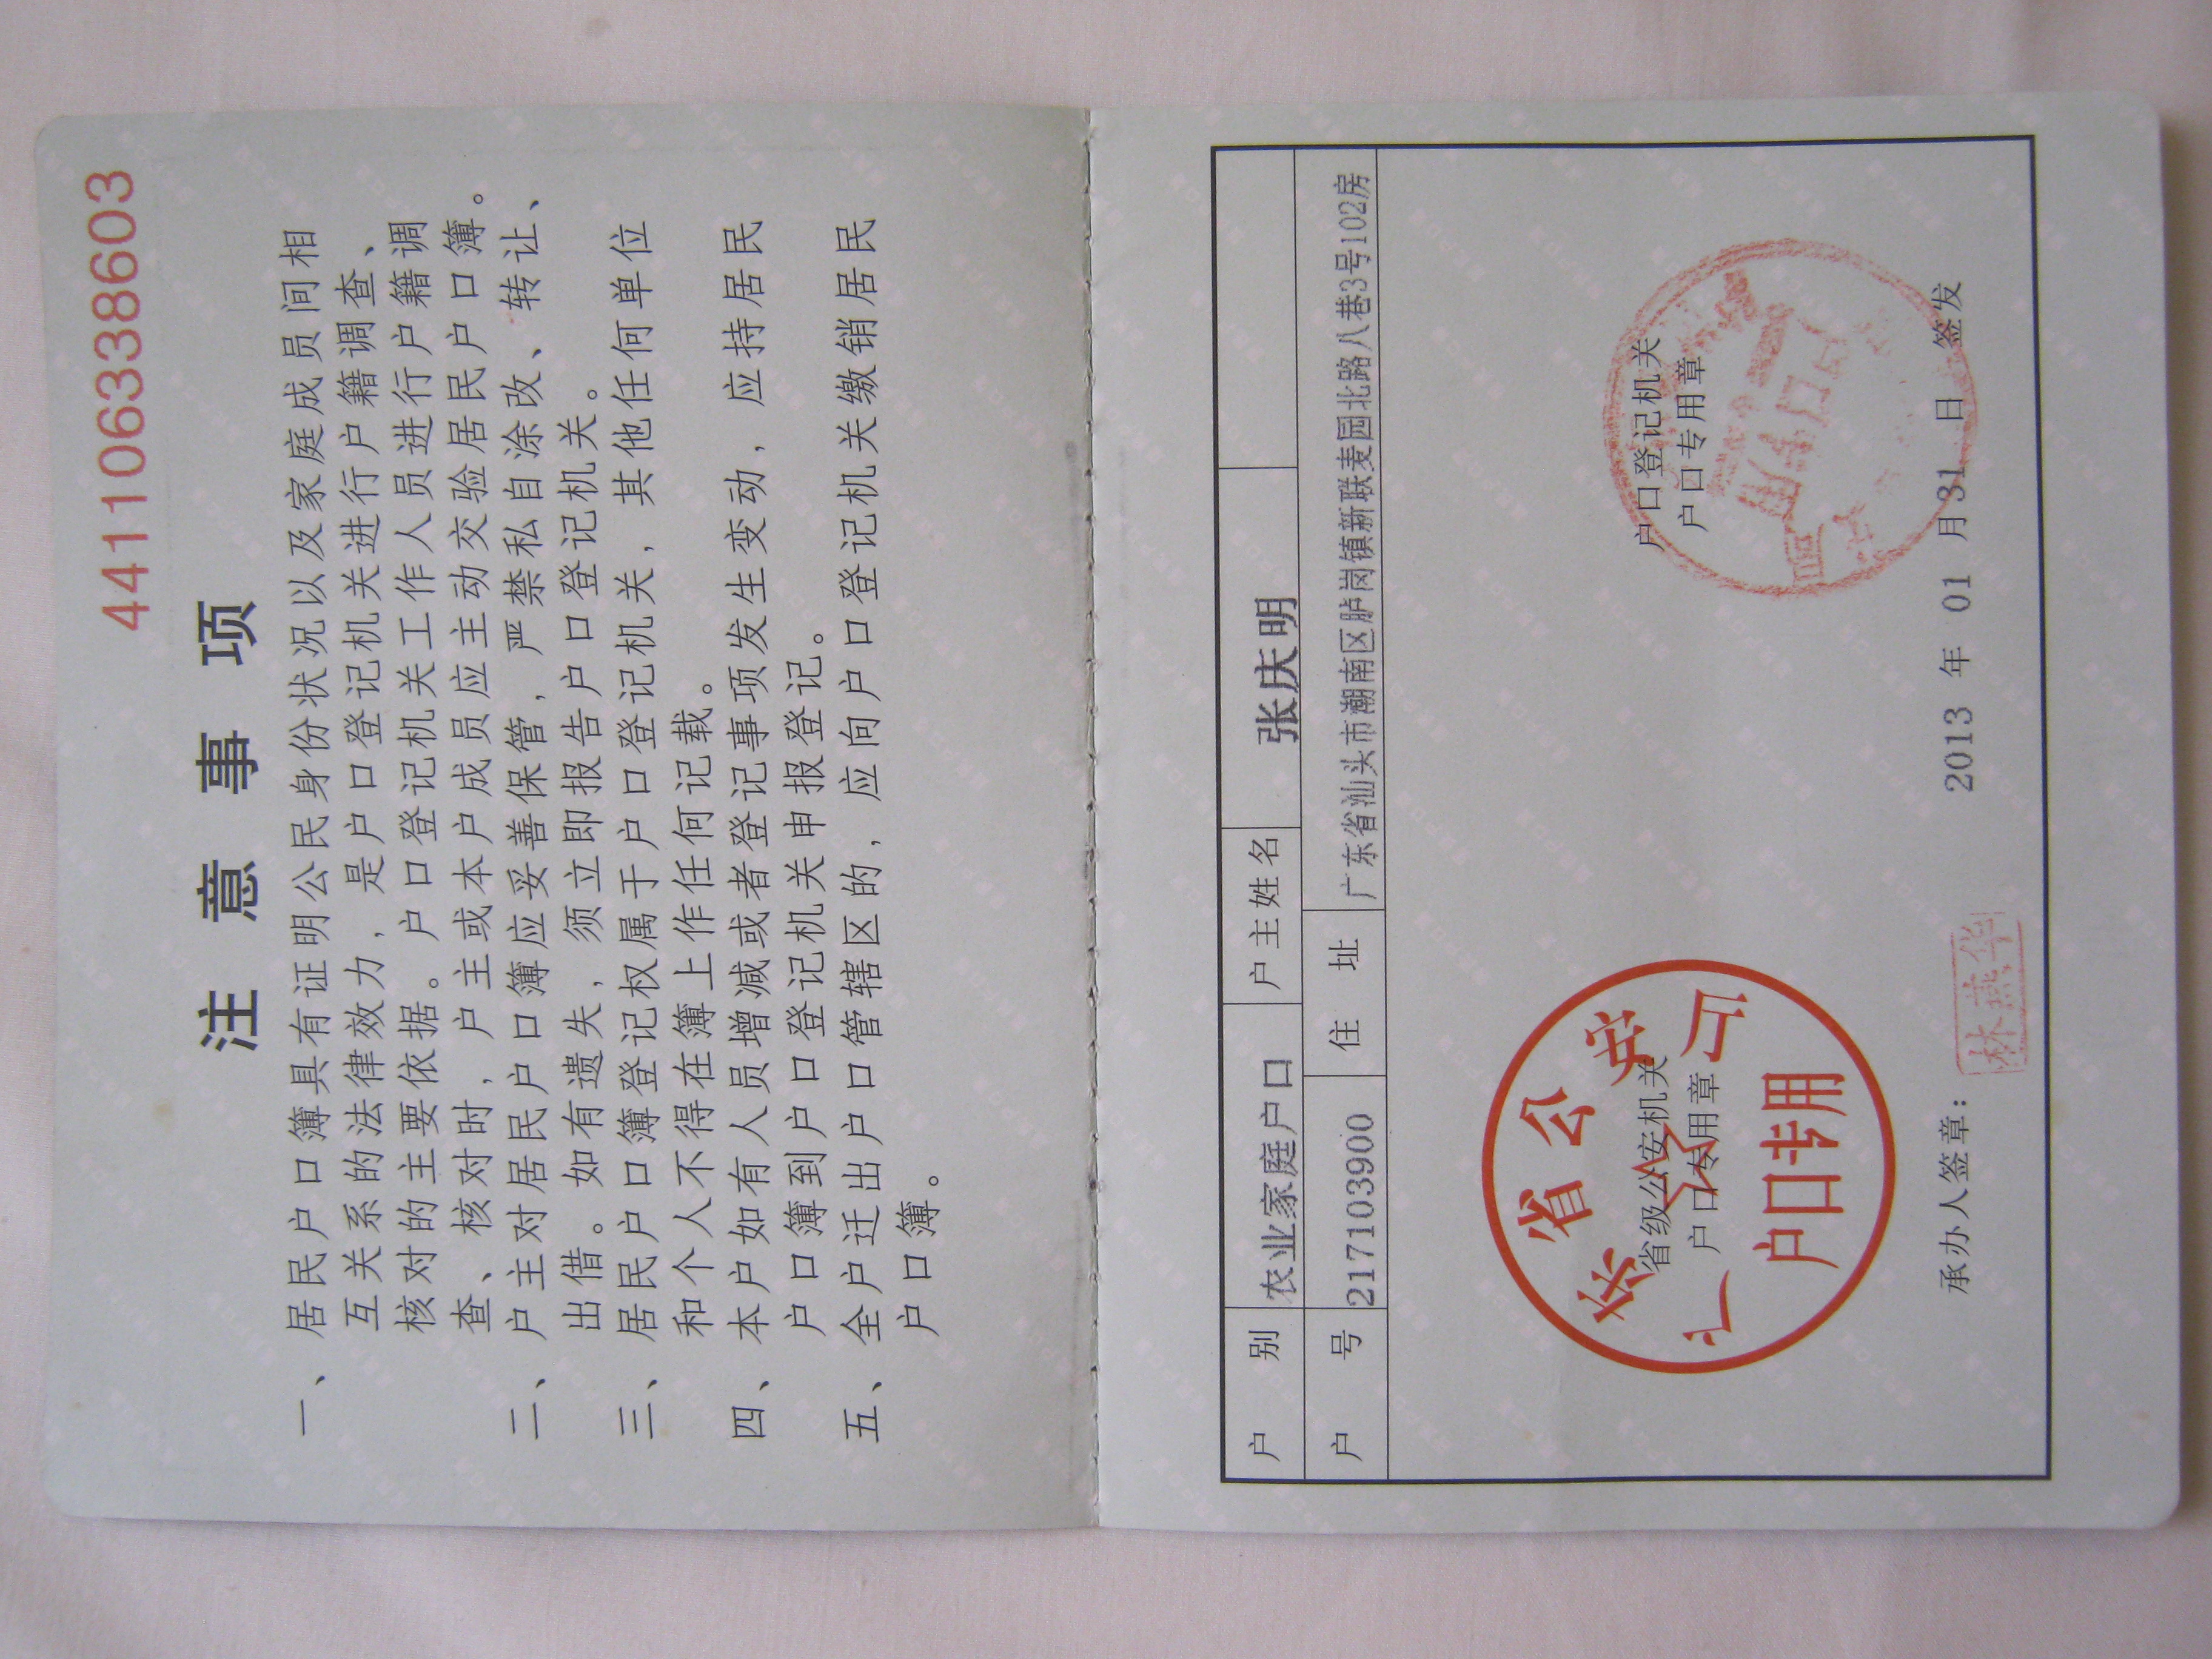 441106338603
注意事项
一、居民户口簿具有证明公民身份状况以及家庭成员间相
互关系的法律效力，是户口登记机关进行户籍调查、
核对的主要依据。户口登记机关工作人员进行户籍调
查、核对时，户主或本户成员应主动交验居民户口簿。
二、户主对居民户口簿应妥善保管，严禁私自涂改、转让、
出借。如有遗失，须立即报告户口登记机关。
三、居民户口簿登记权属于户口登记机关，其他任何单位
和个人不得在簿上作任何记载。
四、本户如有人员增减或者登记事项发生变动，应持居民
户口簿到户口登记机关申报登记。
五、全户迁出户口管辖区的，应向户口登记机关缴销居民
户口簿。
户别 农业家庭户口 户主姓名 张庆明
户号 217103900 住址 广东省汕头市潮南区胪岗镇新联麦园北路八巷3号102房
广东省公安厅
户口专用
省级公安机关
户口专用章
户口登记机关
户口专用章
承办人签章：
林燕华
2013年01月31日签发